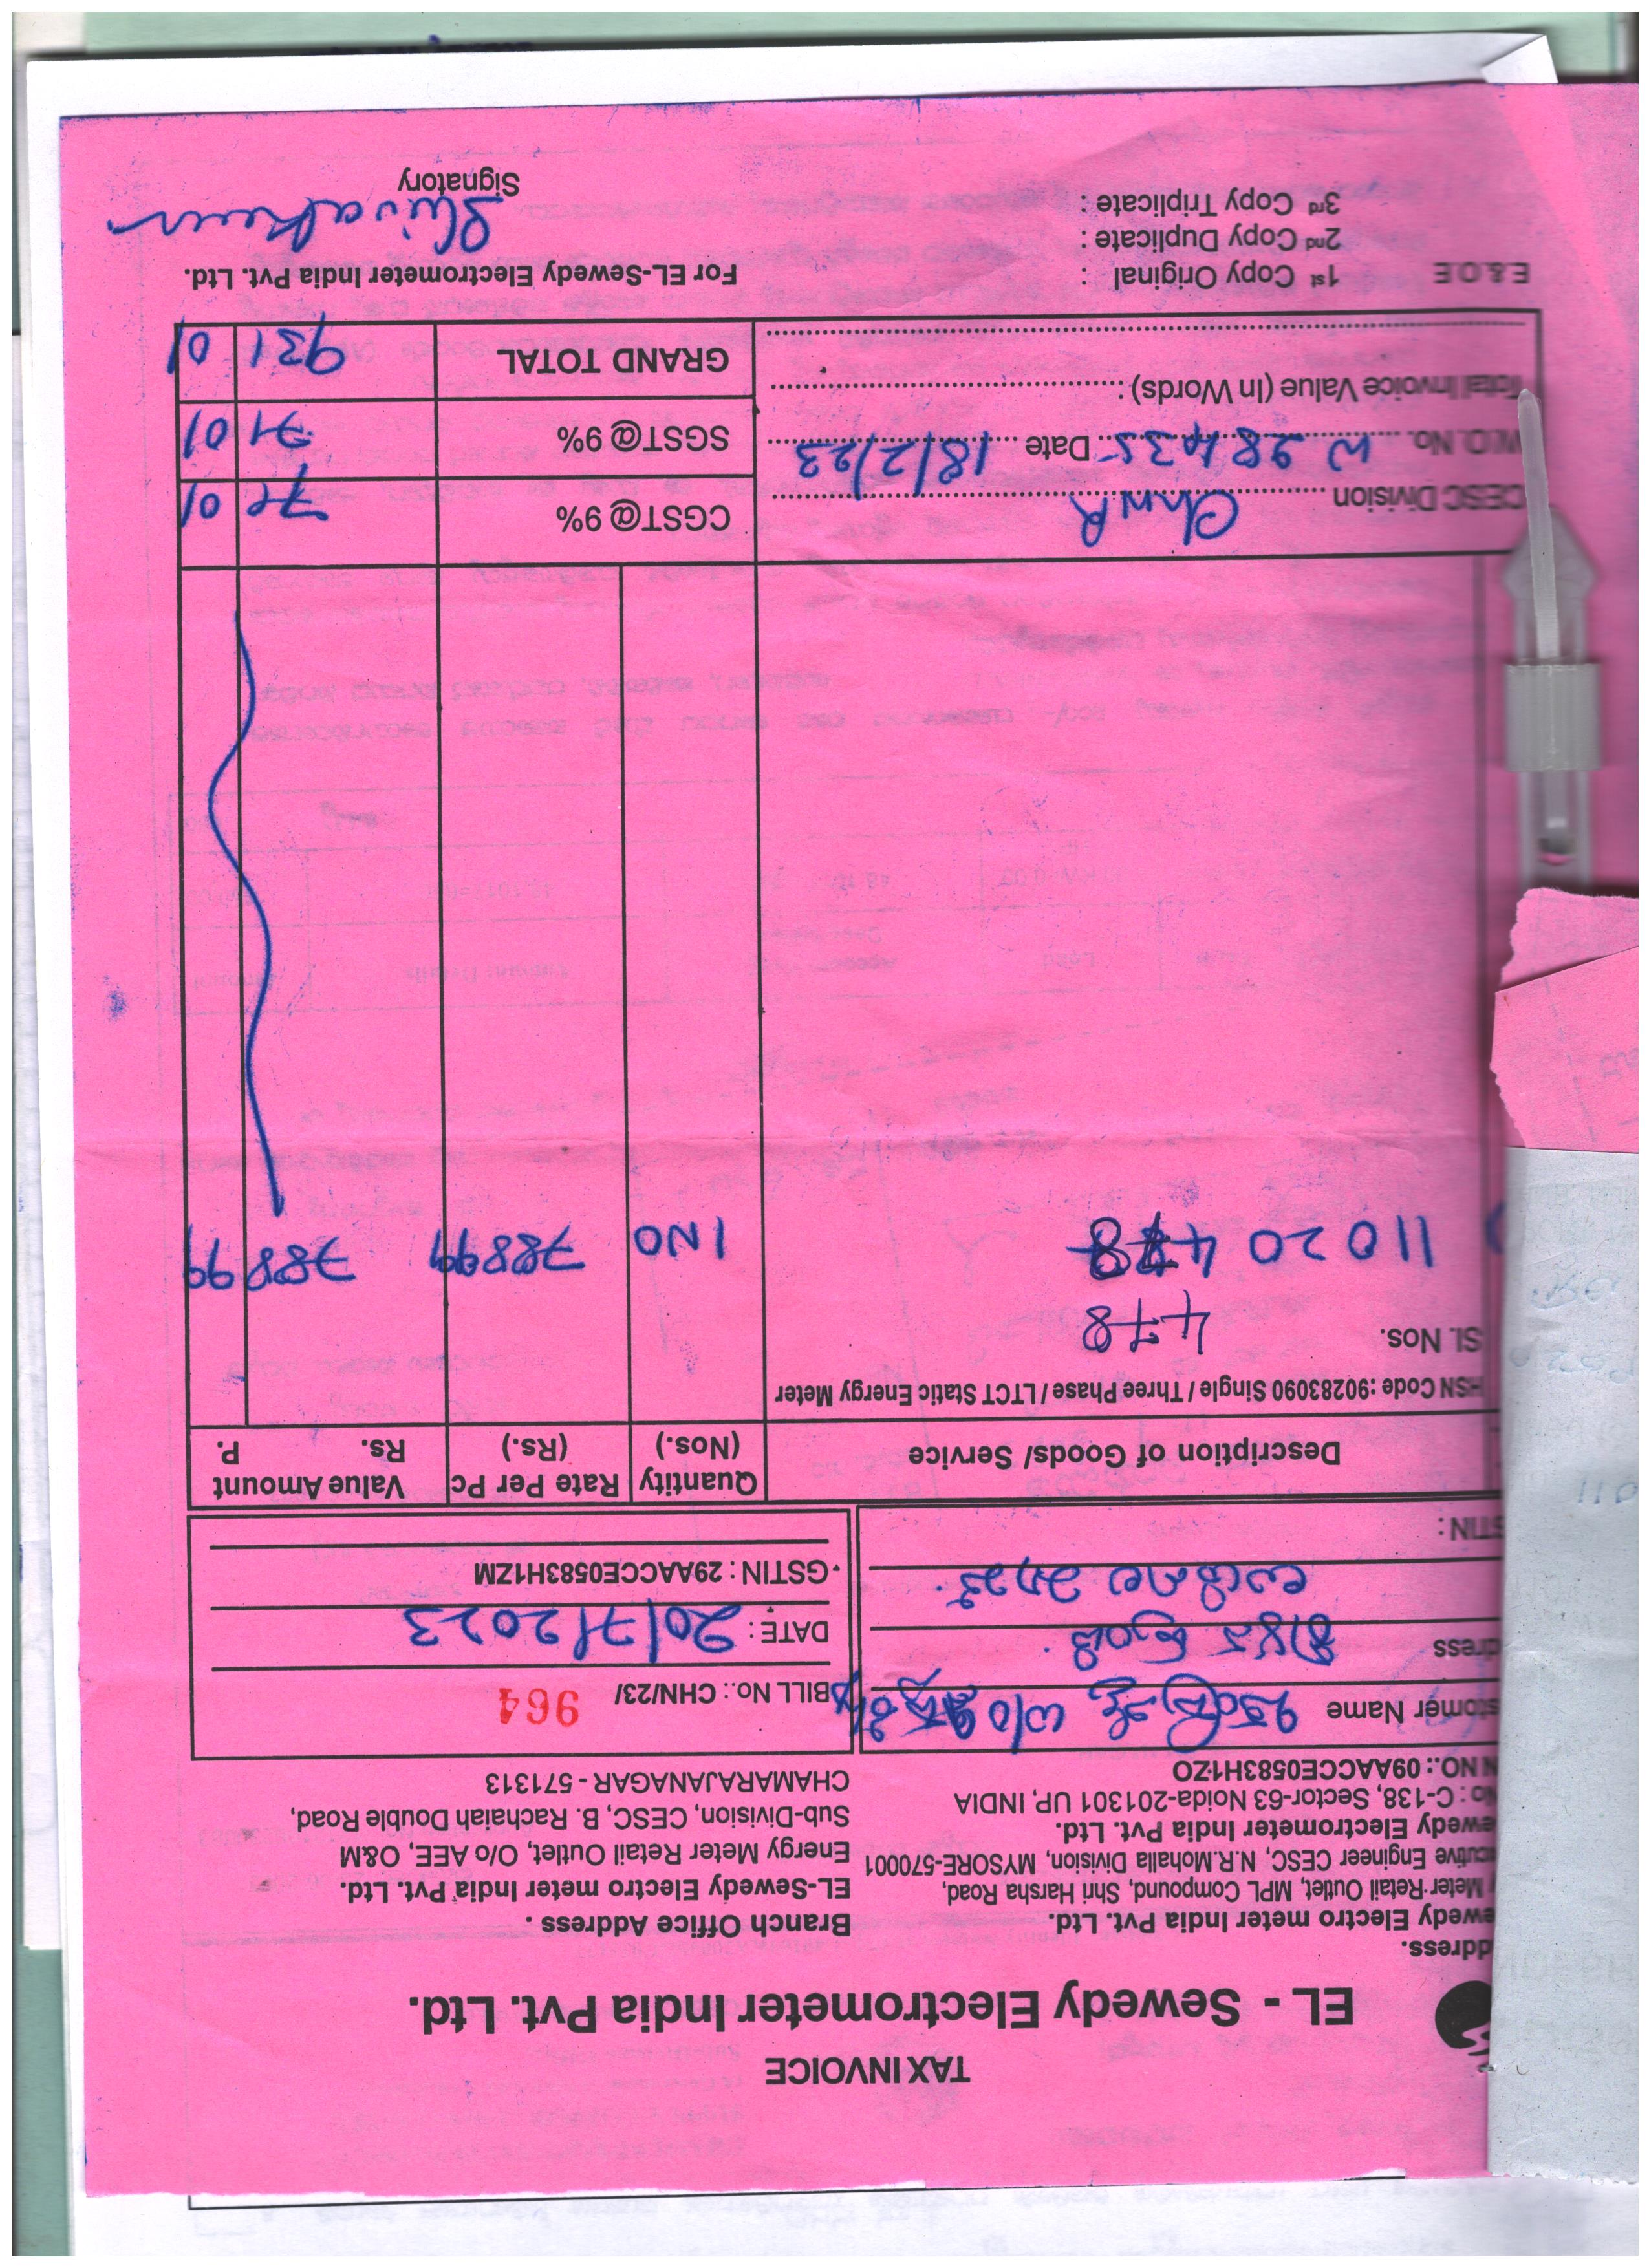 TAX INVOICE
EL - Sewedy Electrometer India Pvt. Ltd.
ddress.
ewedy Electro meter India Pvt. Ltd.
Meter Retail Outlet, MPL Compound, Shri Harsha Road,
cutive Engineer CESC, N.R.Mohalla Division, MYSORE-570001
ewedy Electrometer India Pvt. Ltd.
No : C-138, Sector-63 Noida-201301 UP, INDIA
N NO.: 09AACCE0583H1ZO
Branch Office Address .
EL-Sewedy Electro meter India Pvt. Ltd.
Energy Meter Retail Outlet, O/o AEE, O&M
Sub-Division, CESC, B. Rachaiah Double Road,
CHAMARAJANAGAR - 571313
stomer Name w/o
dress
STIN :
BILL No.: CHN/23/ 964
DATE : 20/7/2023
GSTIN : 29AACCE0583H1ZM
Description of Goods/ Service Quantity (Nos.) Rate Per Pc (Rs.) Value Amount Rs. P.
HSN Code :90283090 Single / Three Phase / LTCT Static Energy Meter
Sl. Nos. 478
11020 478 1 NO 788 99 788 99
CESC Division ChnR CGST@ 9% 71 01
W.O. No. W 28435 Date 18/2/23 SGST@ 9% 71 01
Total Invoice Value (In Words) : GRAND TOTAL 931 01
E & O E 1st Copy Original : For EL-Sewedy Electrometer India Pvt. Ltd.
2nd Copy Duplicate :
3rd Copy Triplicate :
Signatory